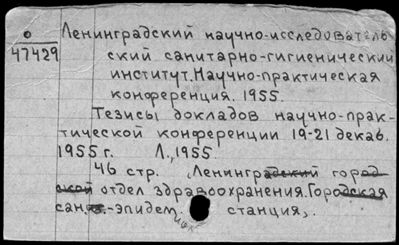 о Ленинградский научно-исследователь
47429 ский санитарно-гигиенический
институт. Научно-практическая
конференция. 1955.
Тезисы докладов научно-прак-
тической конференции 19-21 декаб.
1955 г. Л., 1955.
46 стр. Ленинградский город
ской отдел здравоохранения. Городская
сан.-эпидемиол станция,.